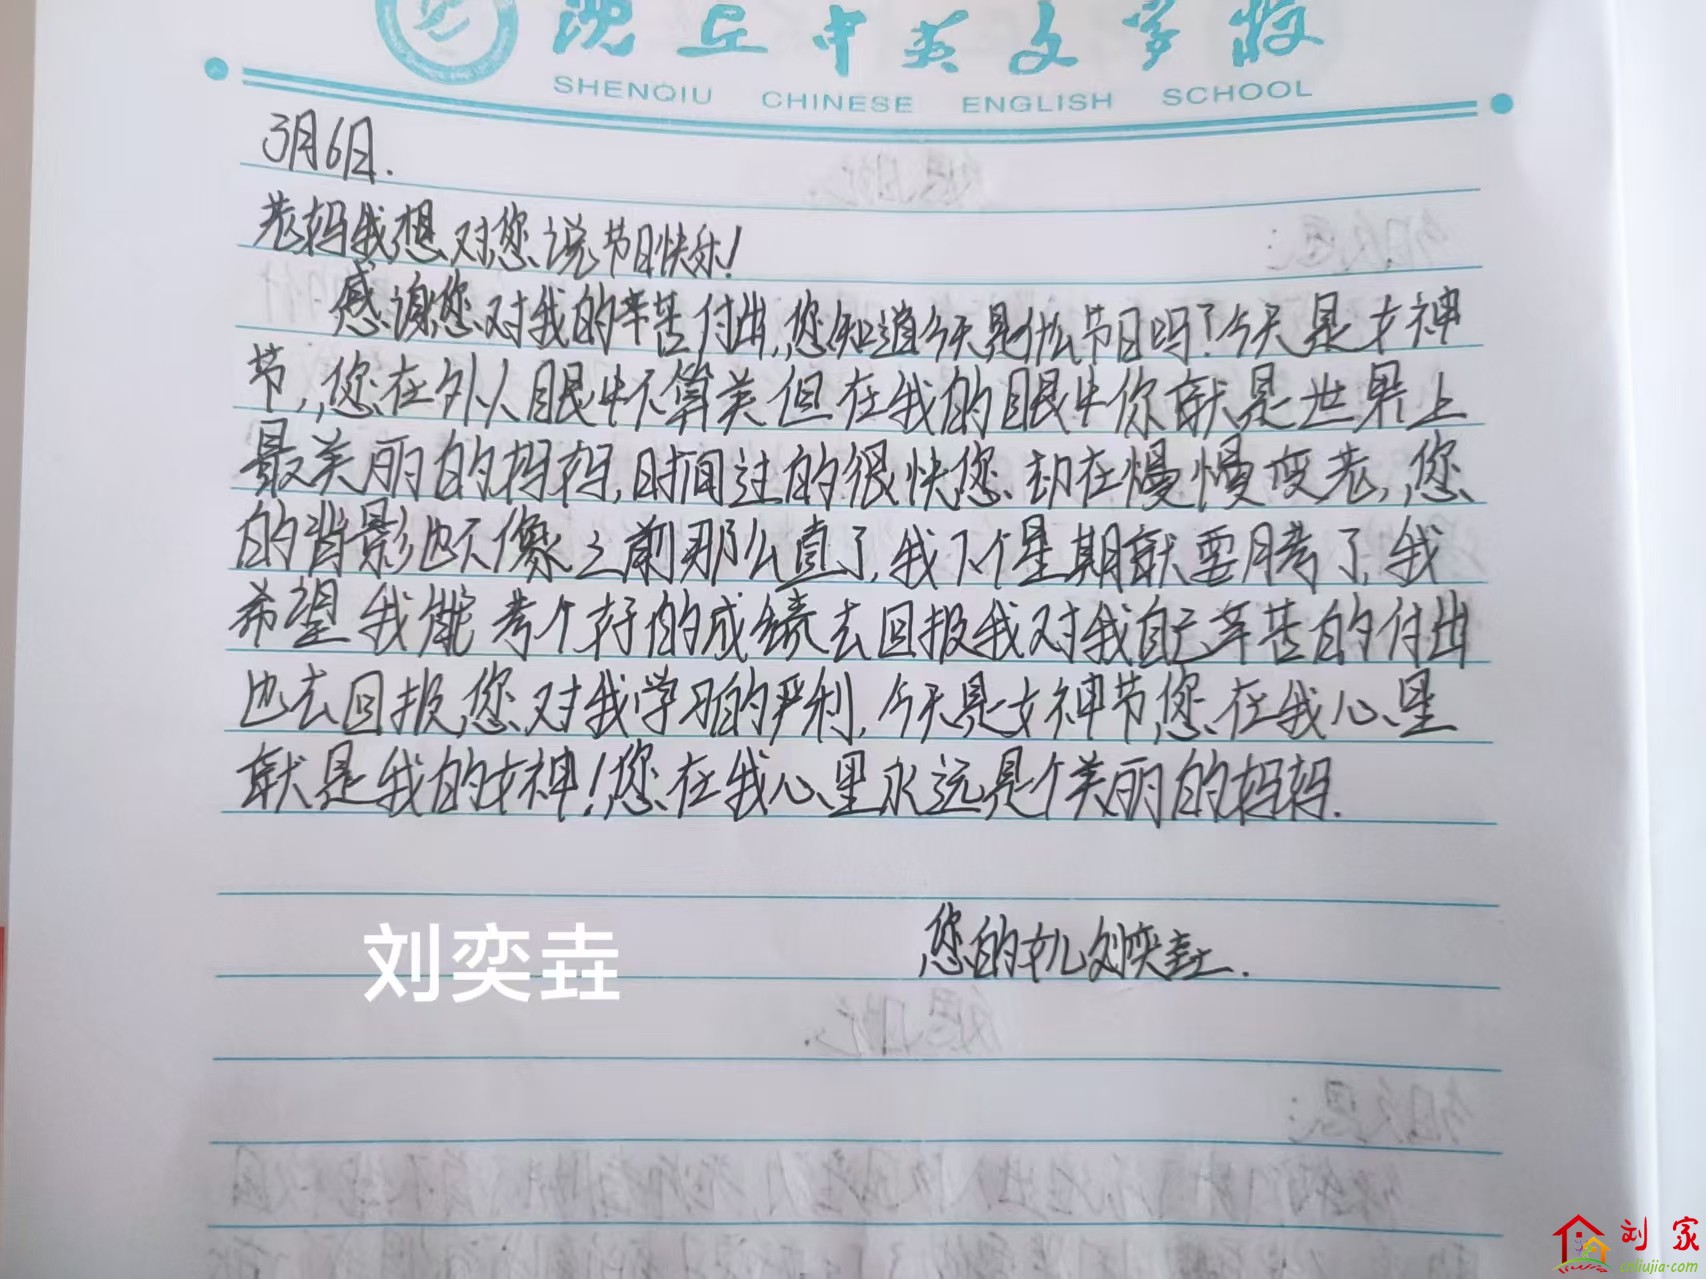 沈丘中英文学校
SHENQIU CHINESE ENGLISH SCHOOL
3月6日.
老妈我想对您说节日快乐!
感谢您对我的辛苦付出,您知道今天是什么节日吗?今天是女神
节,您在外人眼中不算美但在我的眼中你就是世界上
最美丽的妈妈,时间过的很快您却在慢慢变老,您
的背影也不像之前那么直了,我下个星期就要月考了,我
希望我能考个好的成绩去回报我对我自己辛苦的付出
也去回报您对我学习的严利,今天是女神节您在我心里
就是我的女神!您在我心里永远是个美丽的妈妈.
您的女儿刘奕垚.
刘奕垚
刘家